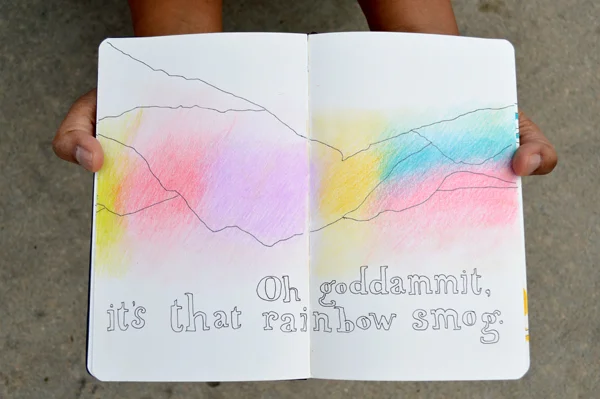 Oh goddammit,
it's that rainbow smog.